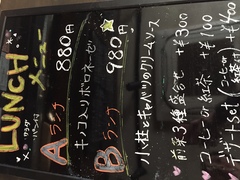 LUNCH
メニュー
※サラダ
パン付
Aランチ 880円
キノコ入りボロネーゼ
Bランチ 980円
小柱とキャベツのクリームソース
前菜3種盛合せ +¥300
コーヒーor紅茶 +¥100
デザートset (コーヒーor +¥400